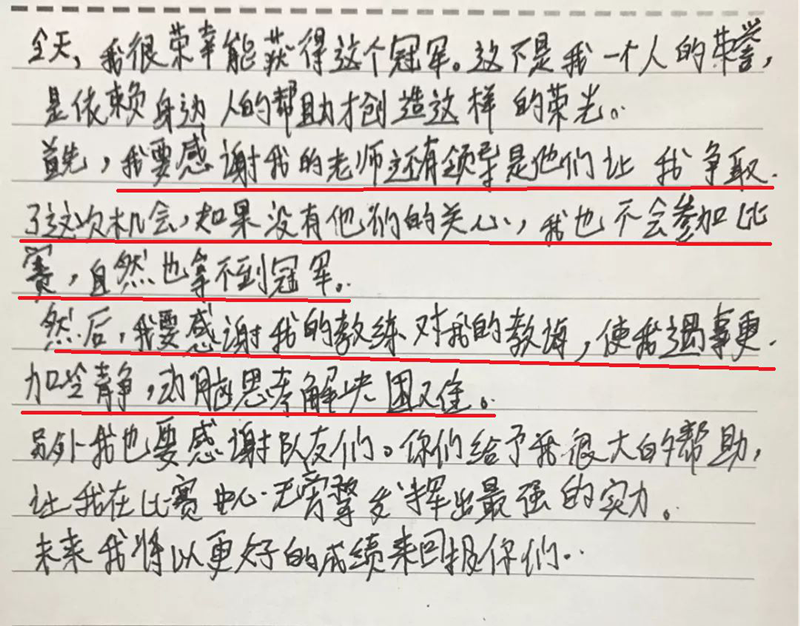 今天，我很荣幸能获得这个冠军。这不是我一个人的荣誉，
是依赖身边人的帮助才创造这样的荣光。
首先，我要感谢我的老师还有领导是他们让我争取
了这次机会，如果没有他们的关心，我也不会参加比
赛，自然也拿不到冠军。
然后，我要感谢我的教练对我的教诲，使我遇事更
加冷静，动脑思考解决困难。
另外我也要感谢队友们。你们给予我很大的帮助，
让我在比赛中心无旁擎发挥出最强的实力。
未来我将以更好的成绩来回报你们。